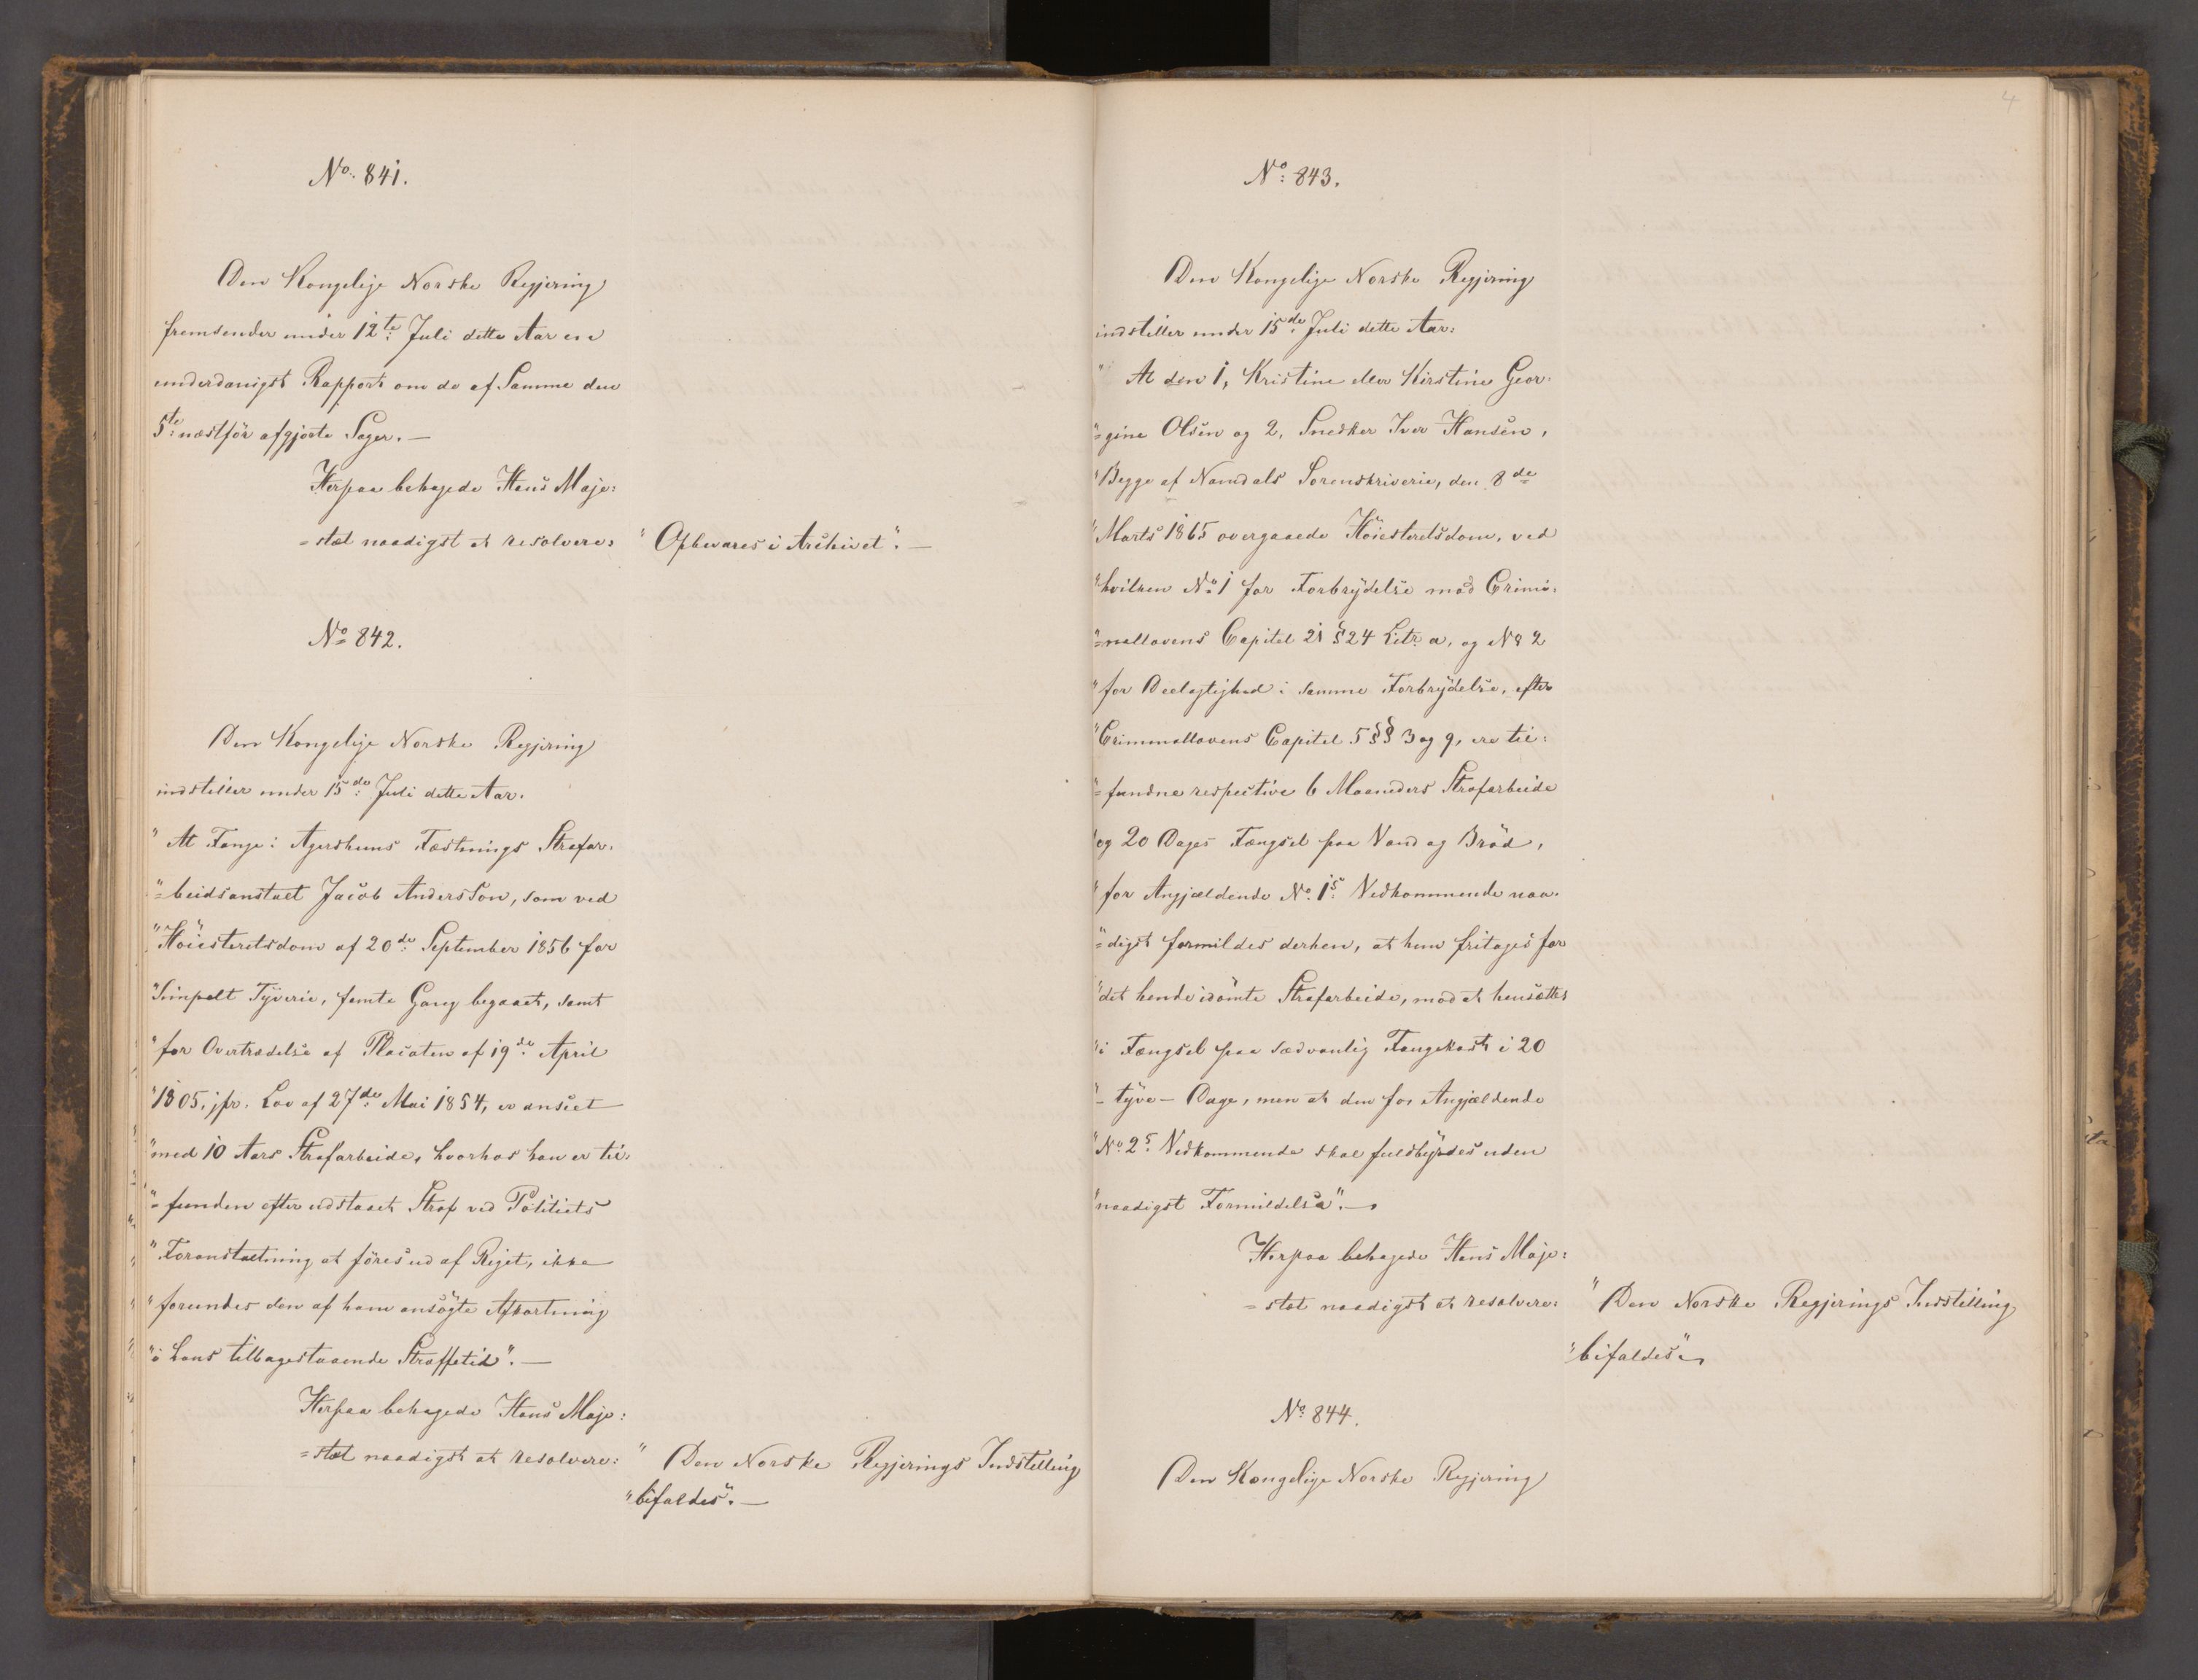 No. 841.
Den Kongelige Norske Regjering
fremsender under 12te Juli dette Aar en
underdanigst Rapport om de af Samme den
5te næstför afgjorte Sager. —
Herpaa behagede Hans Maje:
=stæt naadigst at resolvere: "Opbevares i Archivet". —
No 842.
Den Kongelige Norske Regjering
indstiller under 15de Juli dette Aar.
" At Fange i Agershuus Fæstnings Strafar-
"=beidsanstalt Jacob Andersson, som ved
"Höiesteretsdom af 20de September 1856 for
"Simpelt Tyverie, femte Gang begaaet, samt
"for Overtrædelse af Placaten af 19de April
"1805, jfr. Lov af 27de Mai 1854, er anseet
"med 10 Aars Strafarbeide, hvorhos han er til-
"=funden efter udstaaet Straf ved Politiets
"Foranstaltning at föres ud af Riget, ikke
"forundes den af ham ansögte Afkortning
"i hans tilbagestaaende Straffetid". —
Herpaa behagede Hans Maje:
=stæt naadigst at resolvere: " Den Norske Regjerings Indstilling
"bifaldes". —
4
No: 843.
Den Kongelige Norske Regjering
indstiller under 15de Juli dette Aar:
" At den 1, Kristine eller Kirstine Geor-
"=gine Olsen og 2, Snedker Iver Hansen,
"Begge af Namdals Sorenskriverie, den 8de
"Marts 1865 overgaaede Höiesteretsdom, ved
"hvilken No 1 for Forbrydelse mod Crimi-
"=nallovens Capitel 21 § 24 Litr. a, og No 2
"for Deelagtighed i samme Forbrydelse, efter
"Criminallovens Capitel 5 §§ 3 og 9, ere til-
"=fundne respective 6 Maaneders Strafarbeide
"og 20 Dages Fængsel paa Vand og Bröd,
"for Angjældende No. 1s Vedkommende naa-
"=digst formildes derhen, at hun fritages for
"det hende idömte Strafarbeide, mod at hensættes
"i Fængsel paa sædvanlig Fangekost i 20
"- tyve - Dage, men at den for Angjældende
"No. 2s Vedkommende skal fuldbyrdes uden
"naadigst Formildelse". —
Herpaa behagede Hans Maje:
=stæt naadigst at resolvere: " Den Norske Regjerings Indstilling
"bifaldes". —
No 844.
Den Kongelige Norske Regjering